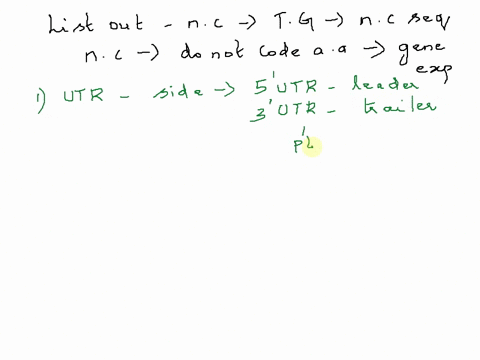 List out - n.c → T.G → n.c seq
n.c → do not code a.a → gene
exp
1) UTR - side → 5' UTR - leader
3' UTR - trailer